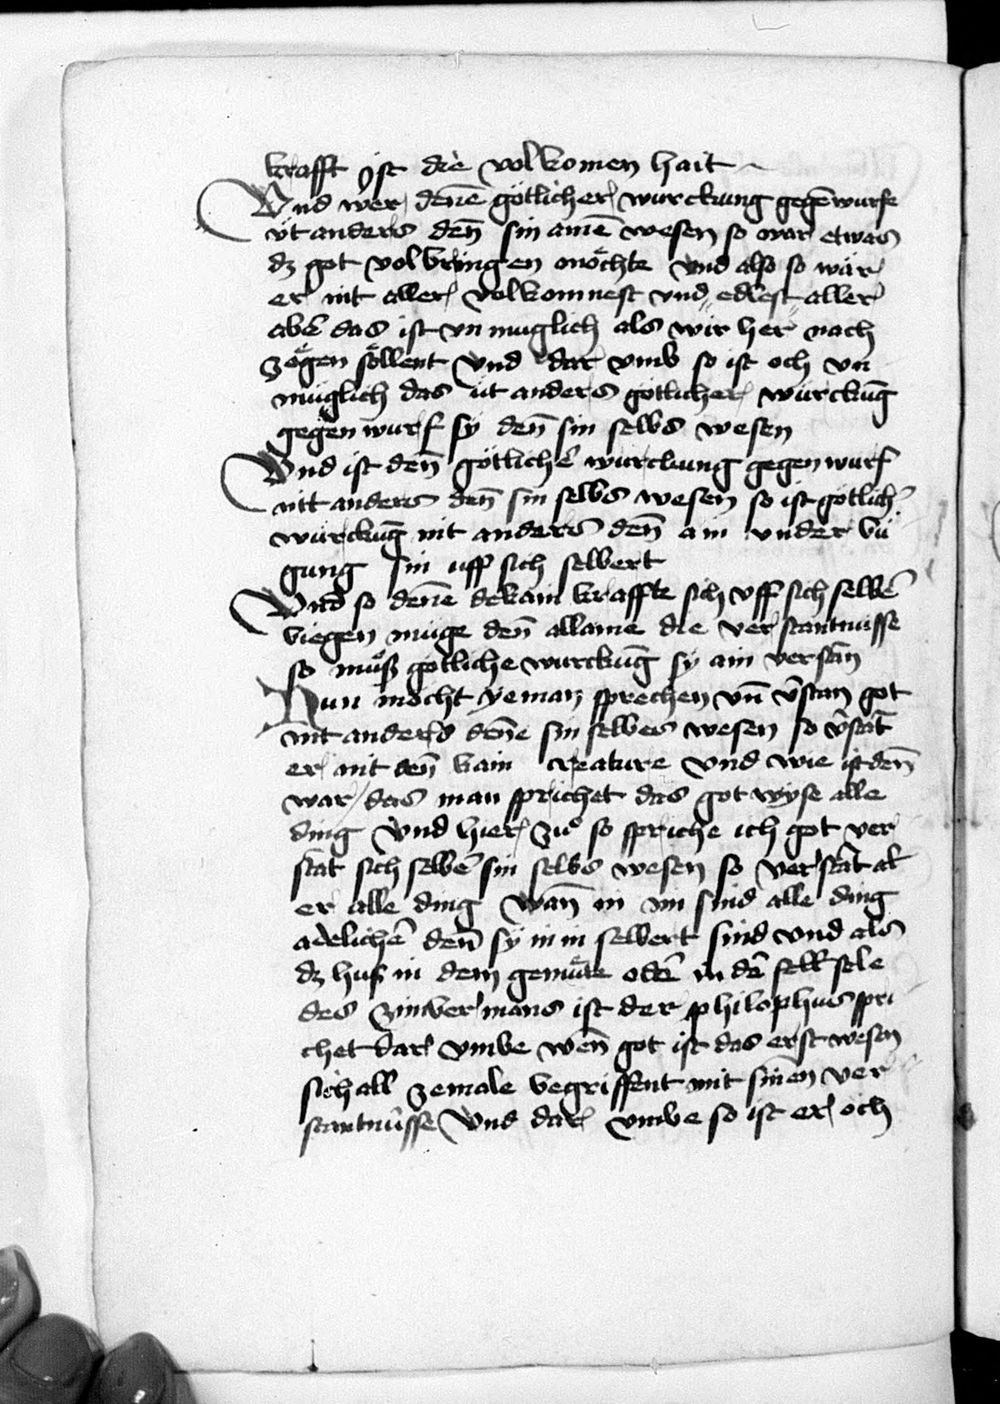 krafft ist die volkomen hait
Und wer denē götlicher würckung gegēwurfe
üt anders deñ sin ainē wesen so wär etwas
dz got volbringen möchte Und also so wär
er nit aller volkomnest und edlest aller
abē das ist un muglich als wir her nach
zögen söllent Und dar umb so ist och un
müglich das üt anders götlicher würckūg
gegen wurf sy deñ sin selbs wesen
Und ist deñ götlichē würckung gegen wurf
nit anders deñ sin selbs wesen so ist götlich
würckūg nit anders deñ ain under bü
gung sin uff sich selbert
Und so denē dekain kraffte sich uff sich selbē
biegen müge deñ allaine die ver stantnisse
so müß götliche würckūg sy ain verstān
Nun möcht yeman sprechen uñ v̄stan got
nit anders denē sin selbes wesen so v̄stāt
er nit deñ kain creature Und wie ist deñ
war das man sprichet das got wyse alle
ding Und hier zuͦ so spriche ich got ver
stāt sich selbē sin selbs wesen so ver stāt al
er alle ding wañ in im sind alle ding
adelichē deñ sy in in selbert sind und als
dz hus in dem gemüte odē in dē selb sele
des zimber mans ist der philophus spri
chet dar umbe weñ got ist das erst wesen
sich all zemale begriffent mit sinen ver
stantnüsse Und dar umbe so ist er och